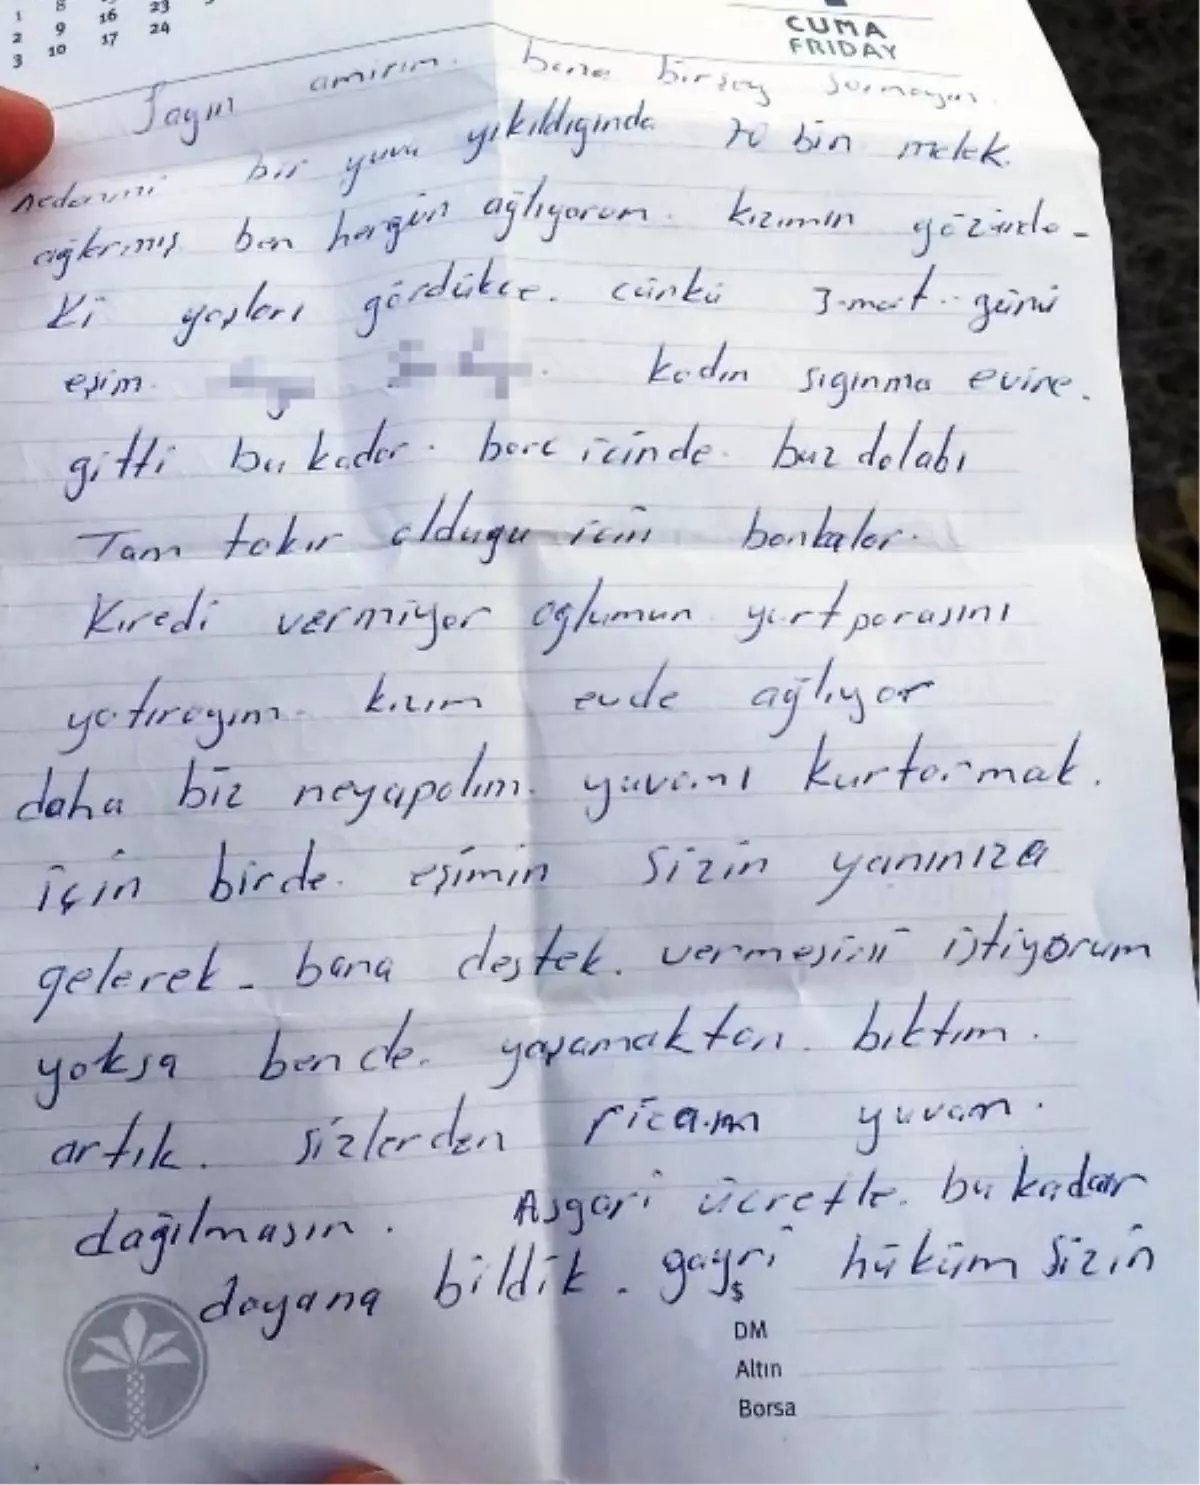 1 8 16 23
2 9 17 24
3 10
CUMA
FRIDAY
Sayın amirim. bana birşey sormayın.
nedenini bir yuva yıkıldığında 70 bin melek.
ağlarmış ben hergün ağlıyorum. kızımın gözünde-
ki yaşları gördükce. cünkü 3-mart.. günü
eşim. kadın sıgınma evine.
gitti bu kadar. borc icinde. buz dolabı
Tam takır oldugu icin bankalar.
Kıredi vermiyor oglumun yurt parasını
yatırayım. kızım evde ağlıyor
daha biz neyapalım. yuvamı kurtarmak.
için birde. eşimin sizin yanınıza
gelerek - bana destek. vermesini istiyorum
yoksa bende. yaşamaktan. bıktım.
artık. sizlerden ricam yuvam.
dağılmasın. Asgari ücretle. bu kadar
dayana bildik. gayri hüküm sizin
$
DM
Altın
Borsa